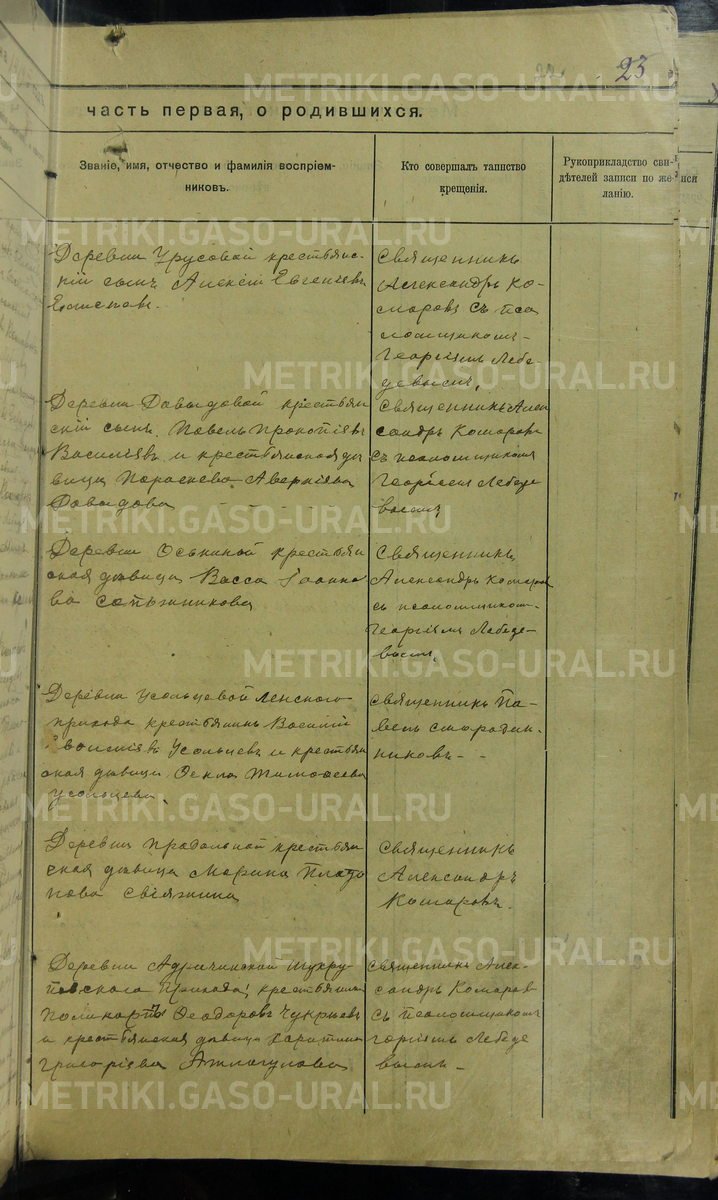 23
METRIKI.GASO-URAL.RU
часть первая, о родившихся.
Званіе, имя, отчество и фамилія воспріем-
никовъ.
Кто совершалъ таинство
крещенія.
Рукоприкладство сви-
дѣтелей записи по же-
ланію.
Деревни Урусовой крестьянс-
кій сынъ Алексій Евгеніевъ
Священникъ
Александръ Ко-
маровъ съ пса
ломщикомъ
Георгіемъ Лебе-
девымъ.
Деревни Давыдовой крестьян
скій сынъ Павелъ Прокопіевъ
Василіевъ и крестьянская дѣ
вица Параскева Аверкіева
Давыдова
Священникъ Алек
сандръ Комаровъ
съ псаломщикомъ
Георгіемъ Лебеде
вымъ
Деревни Оськиной крестьян
ская дѣвица Васса Іоанно
ва Сапожникова
Священникъ
Александръ Комаровъ
съ псаломщикомъ
Георгіемъ Лебеде-
вымъ.
Деревни Усольцевой Ленского
прихода крестьянинъ Василій
Усольцевъ и крестьян
ская дѣвица Ѳекла Тимоѳеева
Усольцева.
Священникъ Па-
велъ Смородин-
никовъ
Деревни крестьян
ская дѣвица Марина Плато
нова
Священникъ
Александръ
Комаровъ.
Деревни
прихода, крестьянинъ
Поликарпъ Ѳеодоровъ
и крестьянская дѣвица Харитина
Григоріева
Священникъ Алек-
сандръ Комаровъ
съ псаломщикомъ
Лебеде
вымъ